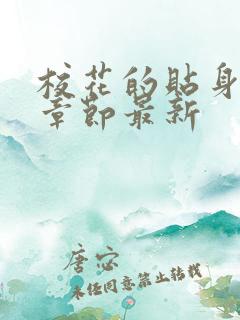 校花的貼身
章節最新
唐宓
未经同意禁止转载